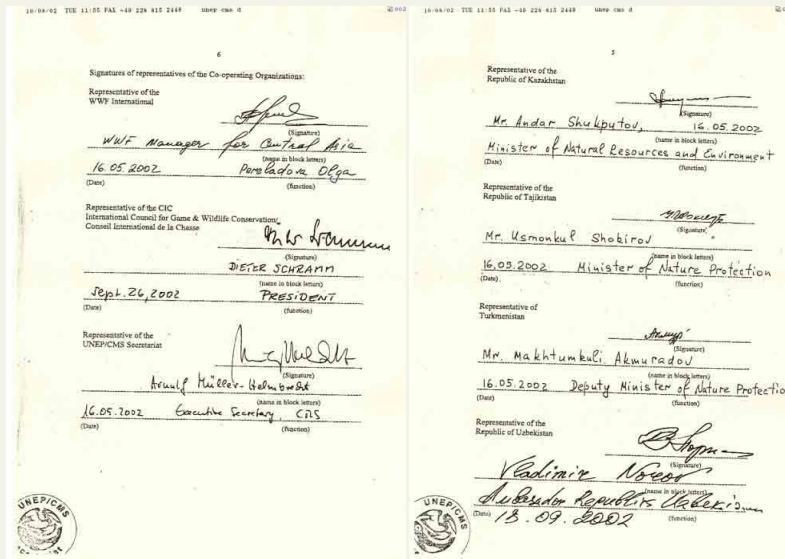 10/09/02 TUE 11:55 FAX +49 228 815 2449 unep cms d
6
Signatures of representatives of the Co-operating Organizations:
Representative of the
WWF International
(Signature)
WWF Manager for Central Asia
(name in block letters)
16.05.2002 Pereladova Olga
(Date) (function)
Representative of the CIC
International Council for Game & Wildlife Conservation/
Conseil International de la Chasse
(Signature)
DIETER SCHRAMM
(name in block letters)
Sept. 26, 2002 PRESIDENT
(Date) (function)
Representative of the
UNEP/CMS Secretariat
(Signature)
Arnulf Müller-Helmbrecht
(name in block letters)
16.05.2002 Executive Secretary, CMS
(Date) (function)
UNEP/CMS
10/09/02 TUE 11:55 FAX +49 228 815 2449 unep cms d
5
Representative of the
Republic of Kazakhstan
(Signature)
Mr. Andar Shukputov, 16.05.2002
(name in block letters)
Minister of Natural Resources and Environment
(Date) (function)
Representative of the
Republic of Tajikistan
(Signature)
Mr. Usmonkul Shokirov
(name in block letters)
16.05.2002 Minister of Nature Protection
(Date) (function)
Representative of
Turkmenistan
(Signature)
Mr. Makhtumkuli Akmuradov
(name in block letters)
16.05.2002 Deputy Minister of Nature Protectio
(Date) (function)
Representative of the
Republic of Uzbekistan
(Signature)
Vladimir Norov
(name in block letters)
Ambasador Republiks Uzbekis
(Date) 13.09.2002 (function)
UNEP/CMS